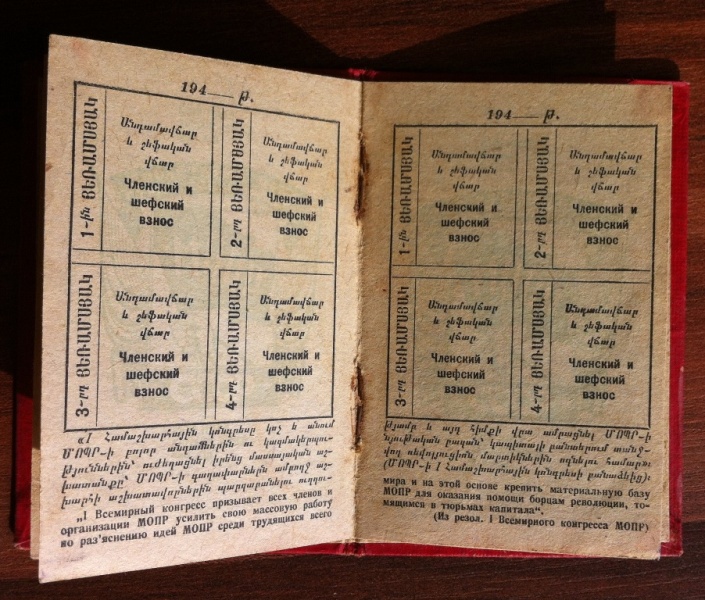 194 — թ.
1-ին ՅԵՌԱՄՍՅԱԿ
Անդամավճար
և շեֆական
վճար
Членский и
шефский
взнос
2-րդ ՅԵՌԱՄՍՅԱԿ
Անդամավճար
և շեֆական
վճար
Членский и
шефский
взнос
3-րդ ՅԵՌԱՄՍՅԱԿ
Անդամավճար
և շեֆական
վճար
Членский и
шефский
взнос
4-րդ ՅԵՌԱՄՍՅԱԿ
Անդամավճար
և շեֆական
վճար
Членский и
шефский
взнос
«I Համաշխարհային կոնգրեսը կոչ և անում
ՄՈՊՐ-ի բոլոր անդամներին ու կազմակերպու-
թյուններին՝ ուժեղացնել իրենց մասսայական աշ-
խատանքը՝ ՄՈՊՐ-ի գաղափարներն ամբողջ աշ-
խարհի աշխատավորներին պարզաբանելու ուղղու-
„I Всемирный конгресс призывает всех членов и
организации МОПР усилить свою массовую работу
по раз'яснению идей МОПР среди трудящихся всего
194 — թ.
1-ին ՅԵՌԱՄՍՅԱԿ
Անդամավճար
և շեֆական
վճար
Членский и
шефский
взнос
2-րդ ՅԵՌԱՄՍՅԱԿ
Անդամավճար
և շեֆական
վճար
Членский и
шефский
взнос
3-րդ ՅԵՌԱՄՍՅԱԿ
Անդամավճար
և շեֆական
վճար
Членский и
шефский
взнос
4-րդ ՅԵՌԱՄՍՅԱԿ
Անդամավճար
և շեֆական
վճար
Членский и
шефский
взнос
թյամբ և այդ հիմքի վրա ամրացնել ՄՈՊՐ-ի
նյութական բազան՝ կապիտալի բանտերում տանջ-
վող ռևոլյուցիայի մարտիկներին ոգնելու համար»:
(ՄՈՊՐ-ի I Համաշխարհային կոնգրեսի բանաձևից):
мира и на этой основе крепить материальную базу
МОПР для оказания помощи борцам революции, то-
мящимся в тюрьмах капитала“.
(Из резол. I Всемирного конгресса МОПР)